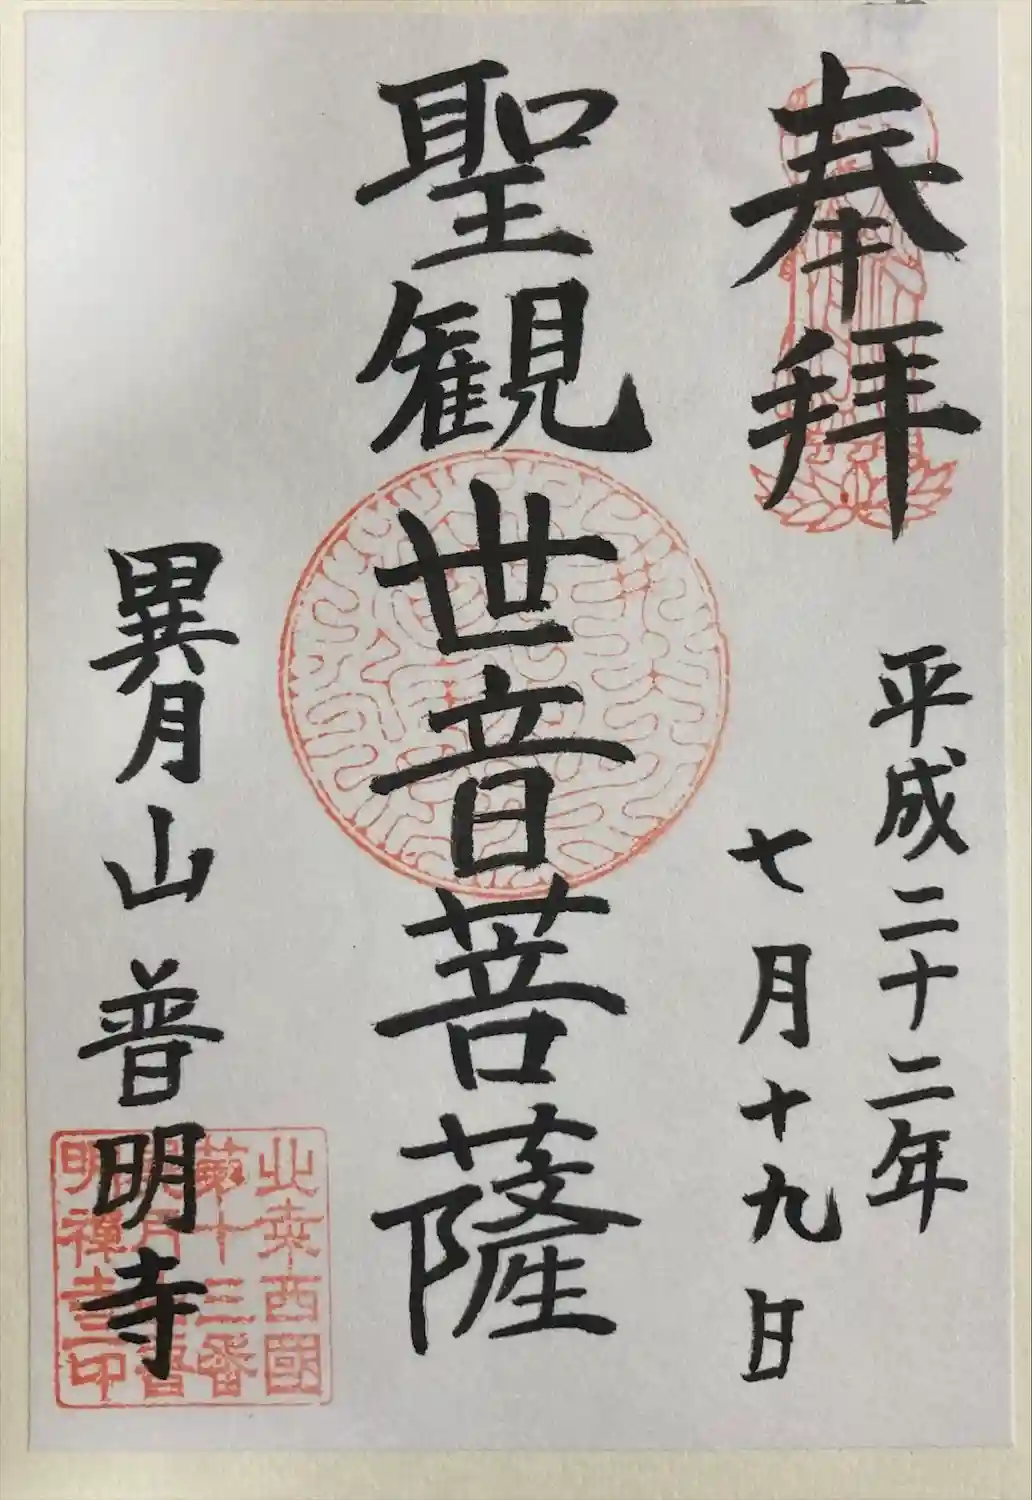 奉拝
平成二十二年
七月十九日
聖観世音菩薩
異月山 普明寺
北桑西國
第十三番
明禅寺印